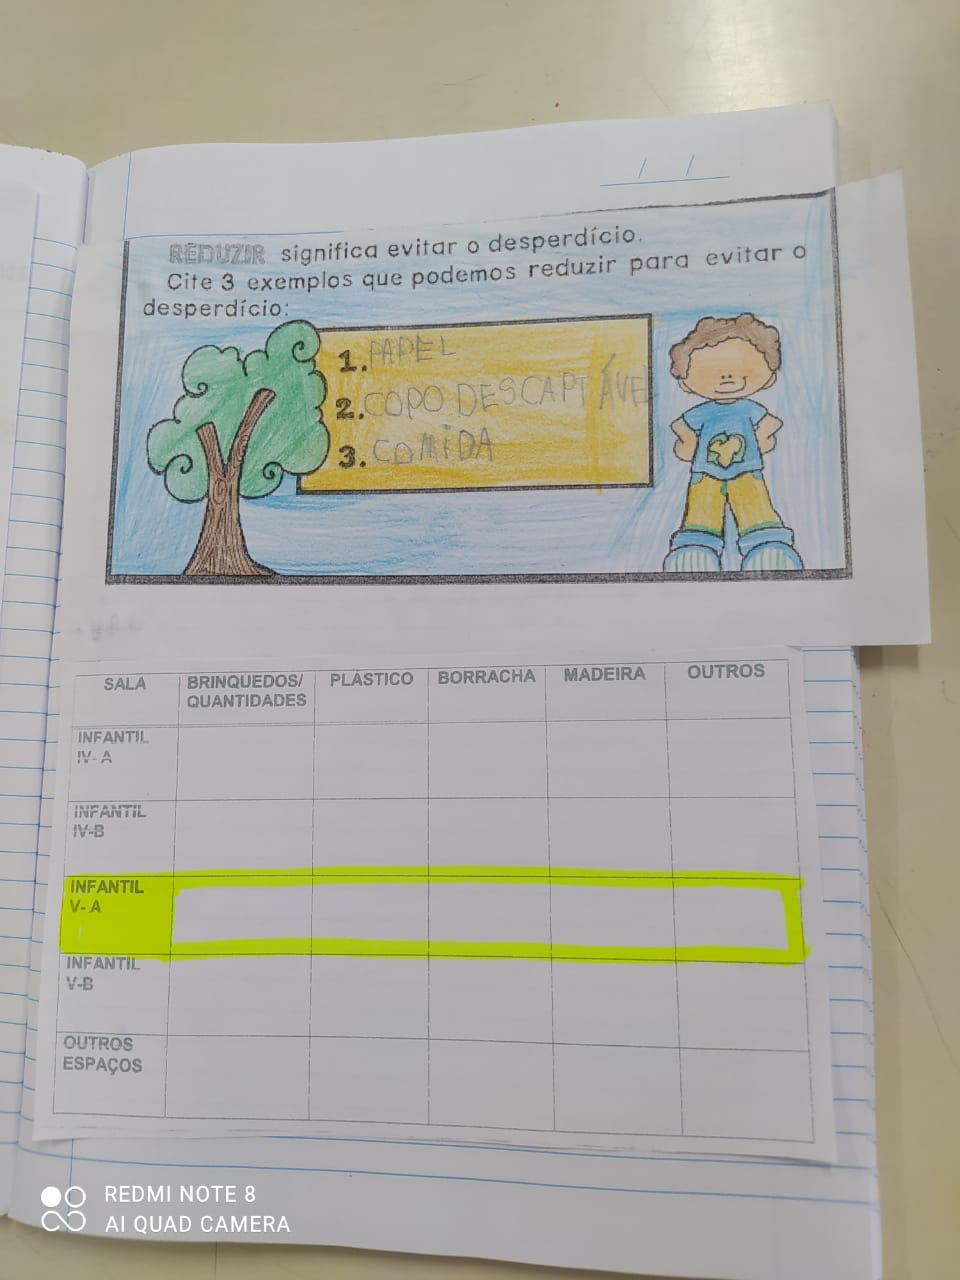 / /
REDUZIR significa evitar o desperdício.
Cite 3 exemplos que podemos reduzir para evitar o
desperdício:
1. PAPEL
2. COPO DESCAPTÁVEL
3. COMIDA
SALA BRINQUEDOS/ QUANTIDADES PLÁSTICO BORRACHA MADEIRA OUTROS
INFANTIL
IV- A
INFANTIL
IV-B
INFANTIL
V- A
INFANTIL
V-B
OUTROS
ESPAÇOS
REDMI NOTE 8
AI QUAD CAMERA